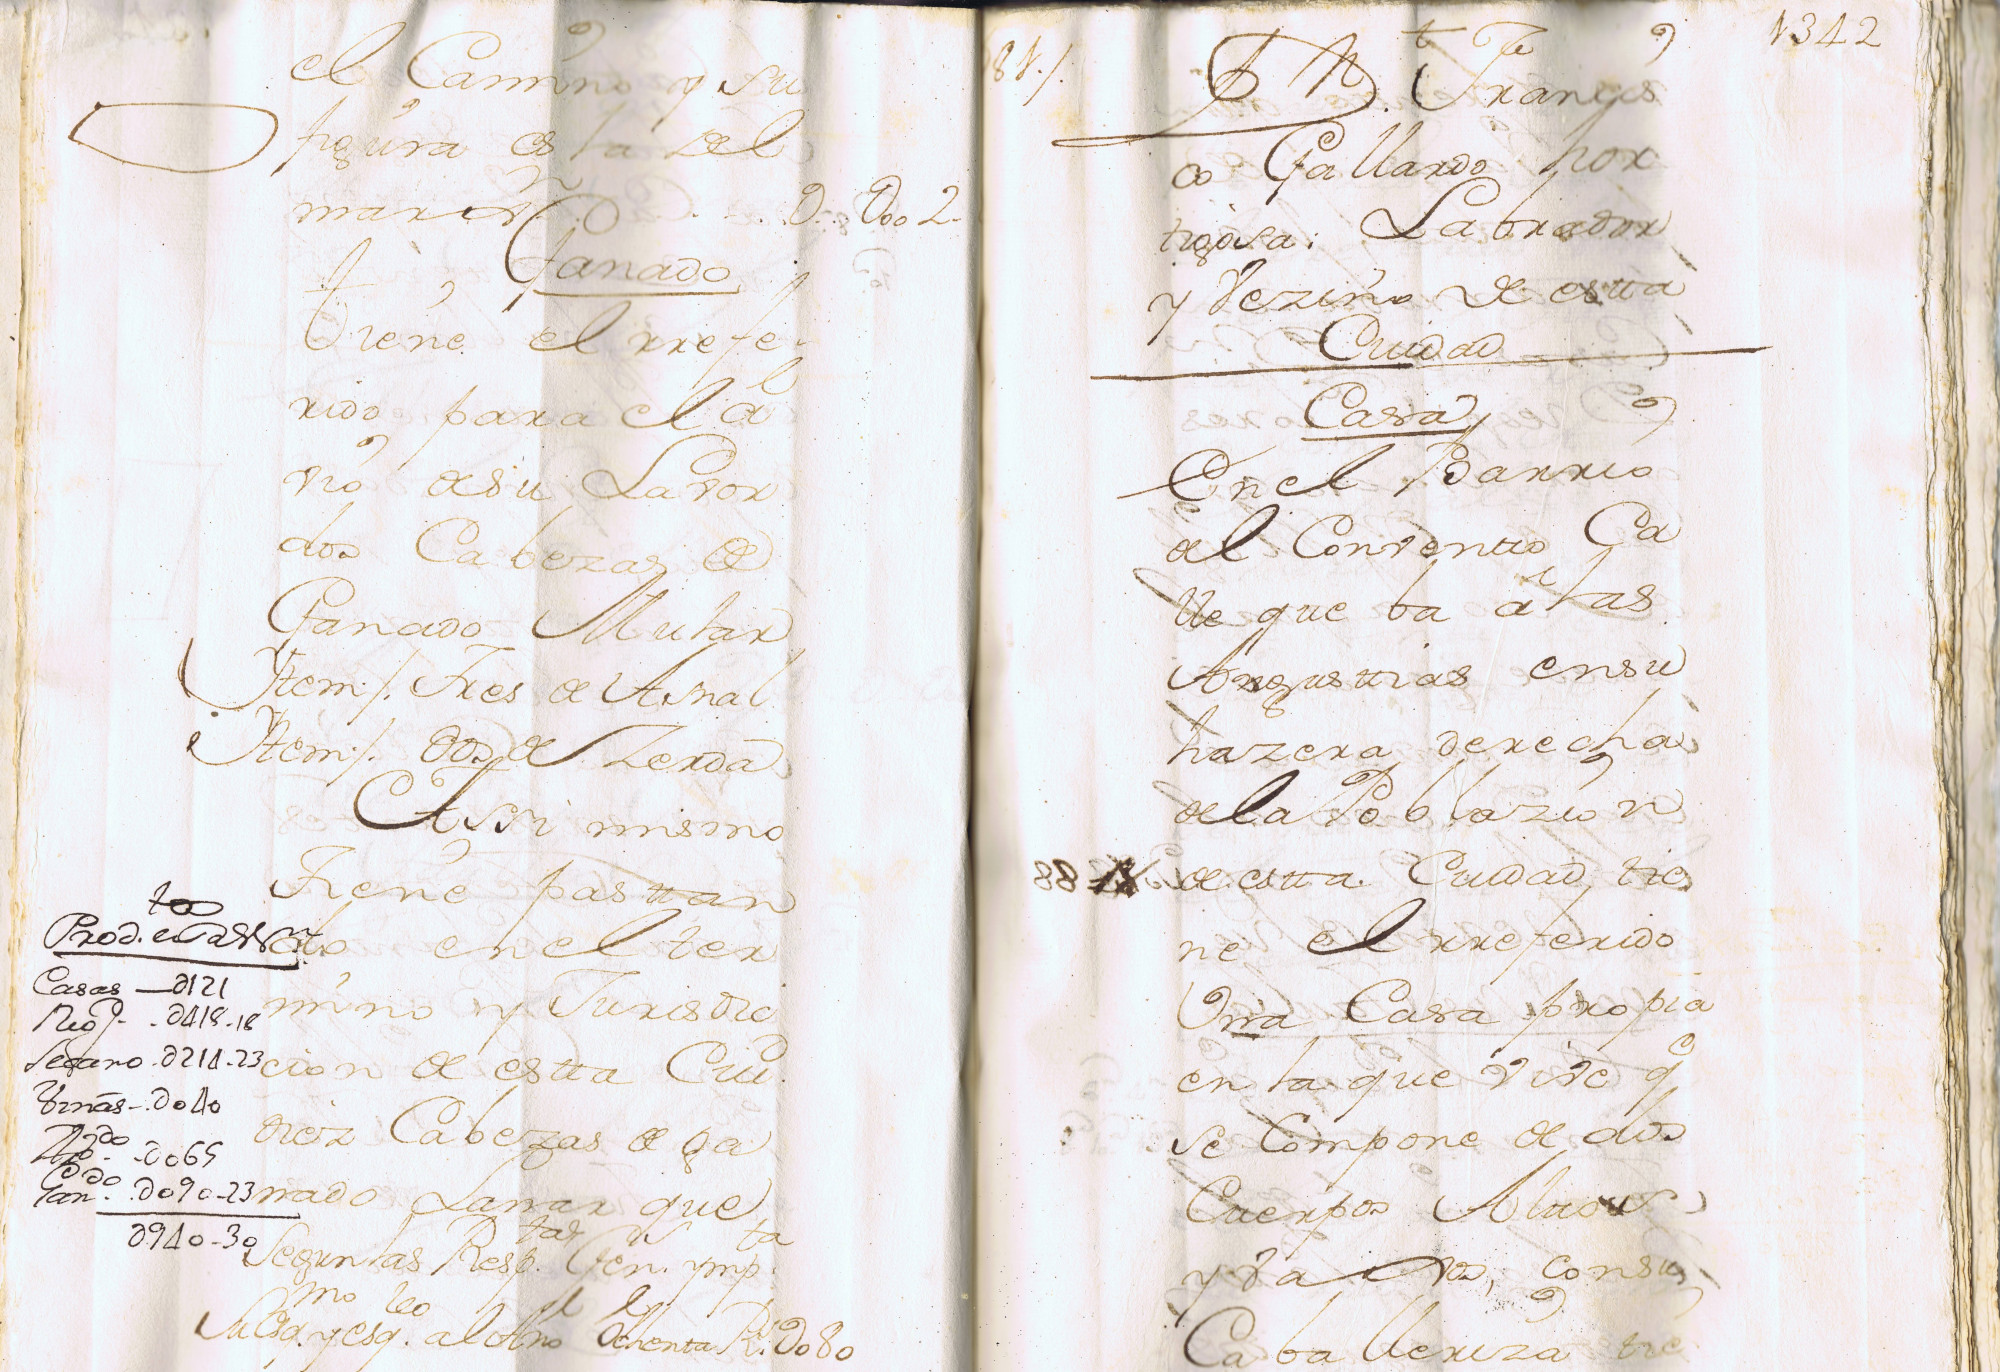 el Camino y su
figura es la del
margen . . . . D. Doo2
Ganado
tiene el rrefe
rido para el a
vio de su Lavor
dos Cabezas de
Ganado Mular
Item/. Tres de Asnal
Item/. dos de Zerda
Assi mismo
Tiene pasttan
do en el ter
mino y Jurisdic
cion de estta Ciud.
diez Cabezas de ga
nado Lanar que
Segun las Resp.tas Gen. ymp.ta
su esq.mo y esq.leo al Año Ochenta R.l Do80
Casas — D121
Neg. . D418-18
Secano . D214-23
Viñas - . Do40
- Do65
Gan.do . Do90-23
D940-30
1342
181./.
Francis
co Gallardo hor
tigosa; Labrador
y Vezino de estta
Ciudad
Casa
En el Barrio
del Conventto Ca
lle que ba a las
Angusttias en su
hazera derecha
de la Poblazion
de estta Ciudad tie
ne el rreferido
Una Casa propia
en la que vive q.e
se Compone de dos
Cuerpos Alttos
y vaxos, con su
Caballeriza tie